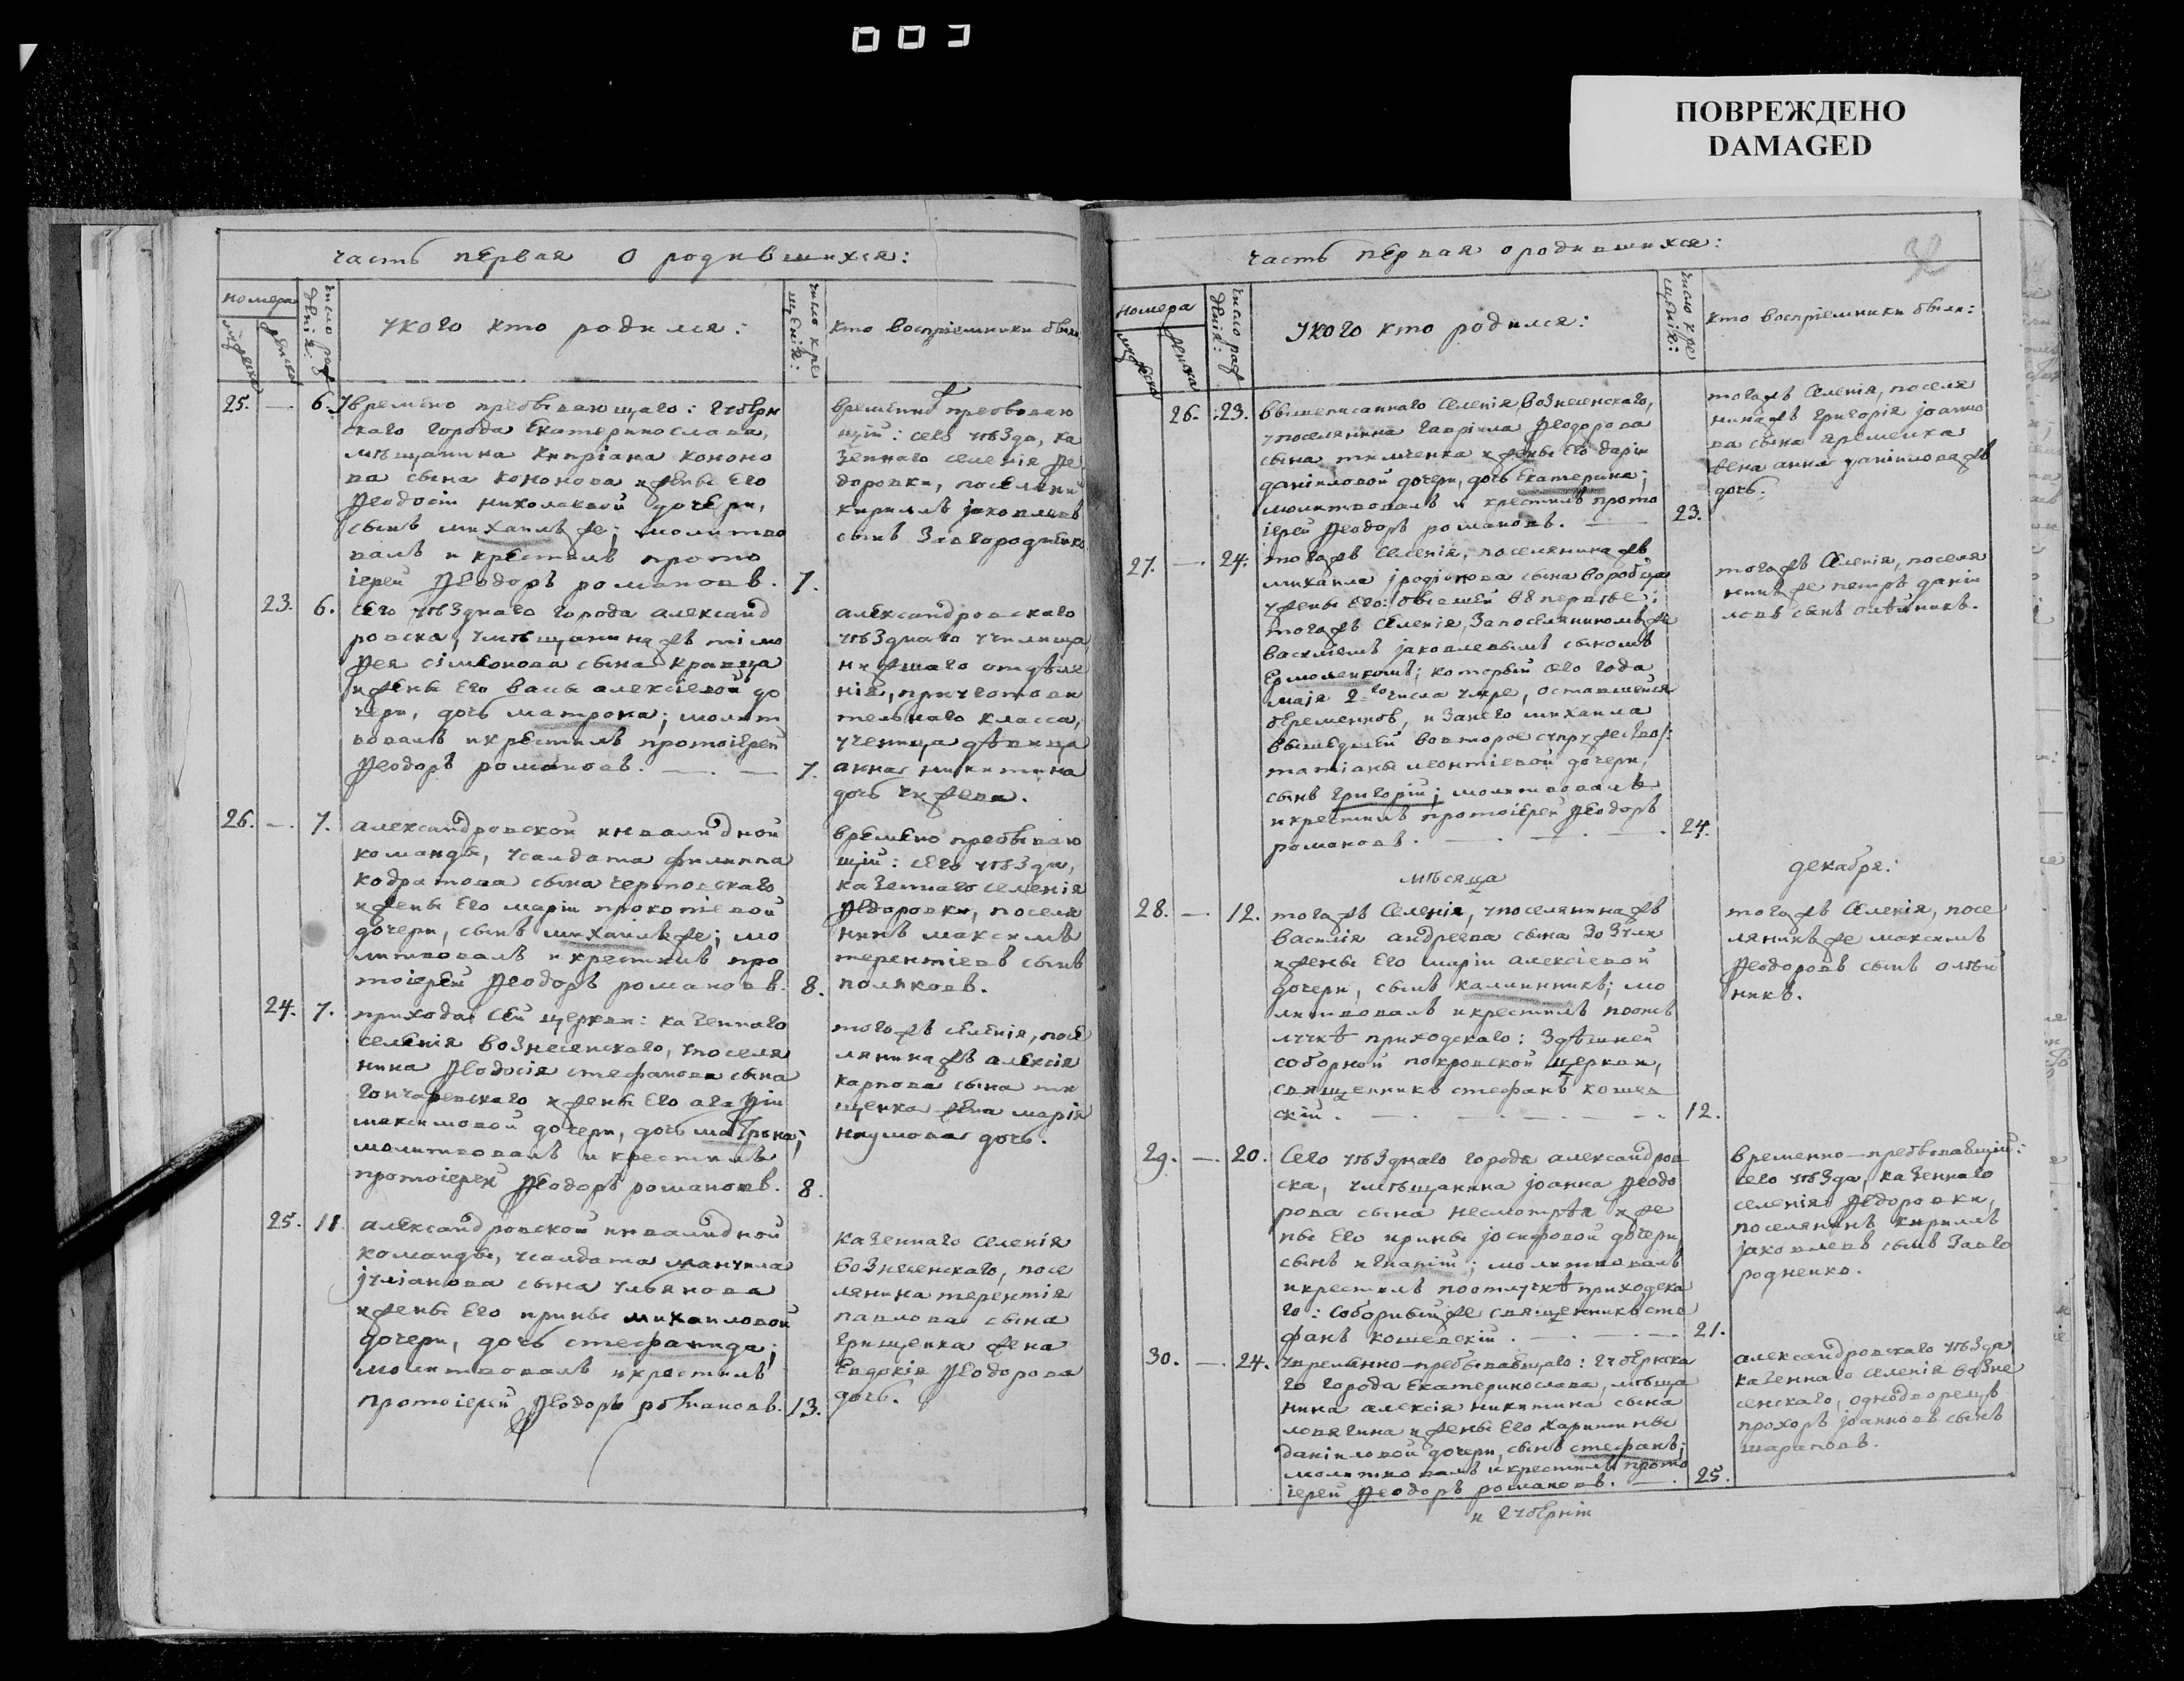 ПОВРЕЖДЕНО
DAMAGED
часть первая о родившихся:
номера
мужеска
женска
число рож
денія:
укого кто родился:
число кре
щенія:
кто воспріемники были
25. — 6.
Увремено пребывающаго: губерн
скаго города Екатеринослава,
мѣщанина Кипріана кононо
ва сына кононова и жены Его
Ѳеодосіи николаевой дочери,
сынъ михаилъ же; молитво
валъ и крестилъ прото
іерей Ѳеодоръ романовъ.
7.
временно пребываю
щій: сего уѣзда, ка
зеннаго селенія Ѳе
доровки, поселянинъ
кириллъ јаковлевъ
сынъ Завгородненко
23. 6.
сего уѣзднаго города александ
ровска, умѣщанина жъ тімо
Ѳея сімеонова сына кравца
и жены Его вассы алексіевой до
чери, дочь матрона; молит
вовалъ и крестилъ протоіерей
Ѳеодоръ романовъ. — . —
7.
александровскаго
уѣзднаго училища
нижшаго отдѣле
нія, приготови
тельнаго класса,
ученица дѣвица
анна никитина
дочь
26. — 7.
александровской инвалидной
команды, усалдата филиппа
кодратова сына чертовскаго
и жены Его маріи прокопіевой
дочери, сынъ михаилъ же; мо
литвовалъ и крестилъ про
тоіерей Ѳеодоръ романовъ.
8.
времено пребываю
щій: сего уѣзда,
казеннаго селенія
Ѳедоровки, поселя
нинъ максимъ
терентіевъ сынъ
поляковъ.
24. 7.
прихода сей церкви: казеннаго
селенія вознесенскаго, упоселя
нина Ѳеодосія стефанова сына
гончаревскаго и жены Его агаѲіи
максимовой дочери, дочь матрона;
молитвовалъ и крестилъ
протоіерей Ѳеодоръ романовъ.
8.
тогожъ селенія, посе
лянина жъ алексія
карпова сына ти
щенка жена марія
наумова дочь.
25. 11
александровской инвалидной
команды, усалдата мануила
јуліанова сына ульянова
и жены Его ирины михаиловой
дочери, дочь стефанида;
молитвовалъ и крестилъ
протоіерей Ѳеодоръ романовъ.
13.
казеннаго селенія
вознесенскаго, посе
лянина терентія
павлова сына
грищенка жена
Евдокія Ѳеодорова
дочь.
часть первая о родившихся:
32
номера
мужеска
женска
число рож
денія:
укого кто родился:
число кре
щенія:
кто воспріемники были:
26. 23.
вышеписаннаго селенія вознесенскаго,
упоселянина гавріила Ѳеодорова
сына тимченка и жены Его даріи
даніиловой дочери, дочь Екатерина;
молитвовалъ и крестилъ прото
іерей Ѳеодоръ романовъ. —
23.
тогожъ селенія, поселя
нина жъ григорія јоанно
ва сына яременка
жена анна даніилова жъ
дочь.
27. — 24.
тогожъ селенія, поселянина жъ
михаила јродіонова сына воробца
ужены Его: бывшей въ первые:
тогожъ селенія, запоселяниномъ же
василіемъ јаковлевымъ сыномъ
Ермоленкомъ; который сего года
маія 2-го числа умре, оставшейся
беременною, и занего михаила
вышедшей вовторое супружество/:
татіаны леонтіевой дочери,
сынъ григорій; молитвовалъ
и крестилъ протоіерей Ѳеодоръ
романовъ. — . — . —
24.
тогожъ селенія, поселя
нинъ же петръ даніи
ловъ сынъ олѣйникъ.
мѣсяца декабря:
28. — 12.
тогожъ селенія, упоселянина жъ
василія андреева сына зозули
и жены Его маріи алексіевой
дочери, сынъ каллинникъ; мо
литвовалъ и крестилъ поотъ
лучкѣ приходскаго: здѣшней
соборной покровской церкви,
священникъ стефанъ кошев
скій. — . — . — . — .
12.
тогожъ селенія, посе
лянинъ же максимъ
Ѳеодоровъ сынъ олѣй
никъ.
29. — 20.
сего уѣзднаго города александров
ска, умѣщанина јоанна Ѳеодо
рова сына несмотрѣя и же
ны Его ирины јосифовой дочери
сынъ игнатій; молитвовалъ
и крестилъ поотлучкѣ приходска
го: соборный же священникъ сте
фанъ кошевскій. — . — . —
21.
временно-пребывающій:
сего уѣзда, казеннаго
селенія Ѳедоровки,
поселянинъ кириллъ
јаковлевъ сынъ завго
родненко.
30. — 24.
Увременно-пребывающаго: губернска
го города Екатеринослава, мѣща
нина алексія никитина сына
ловягина и жены Его харитины
даніиловой дочери, сынъ стефанъ;
молитвовалъ и крестилъ прото
іерей Ѳеодоръ романовъ. —
25.
александровскаго уѣзда
казеннаго селенія возне
сенскаго, однодворецъ
прохоръ јоанновъ сынъ
шараповъ.